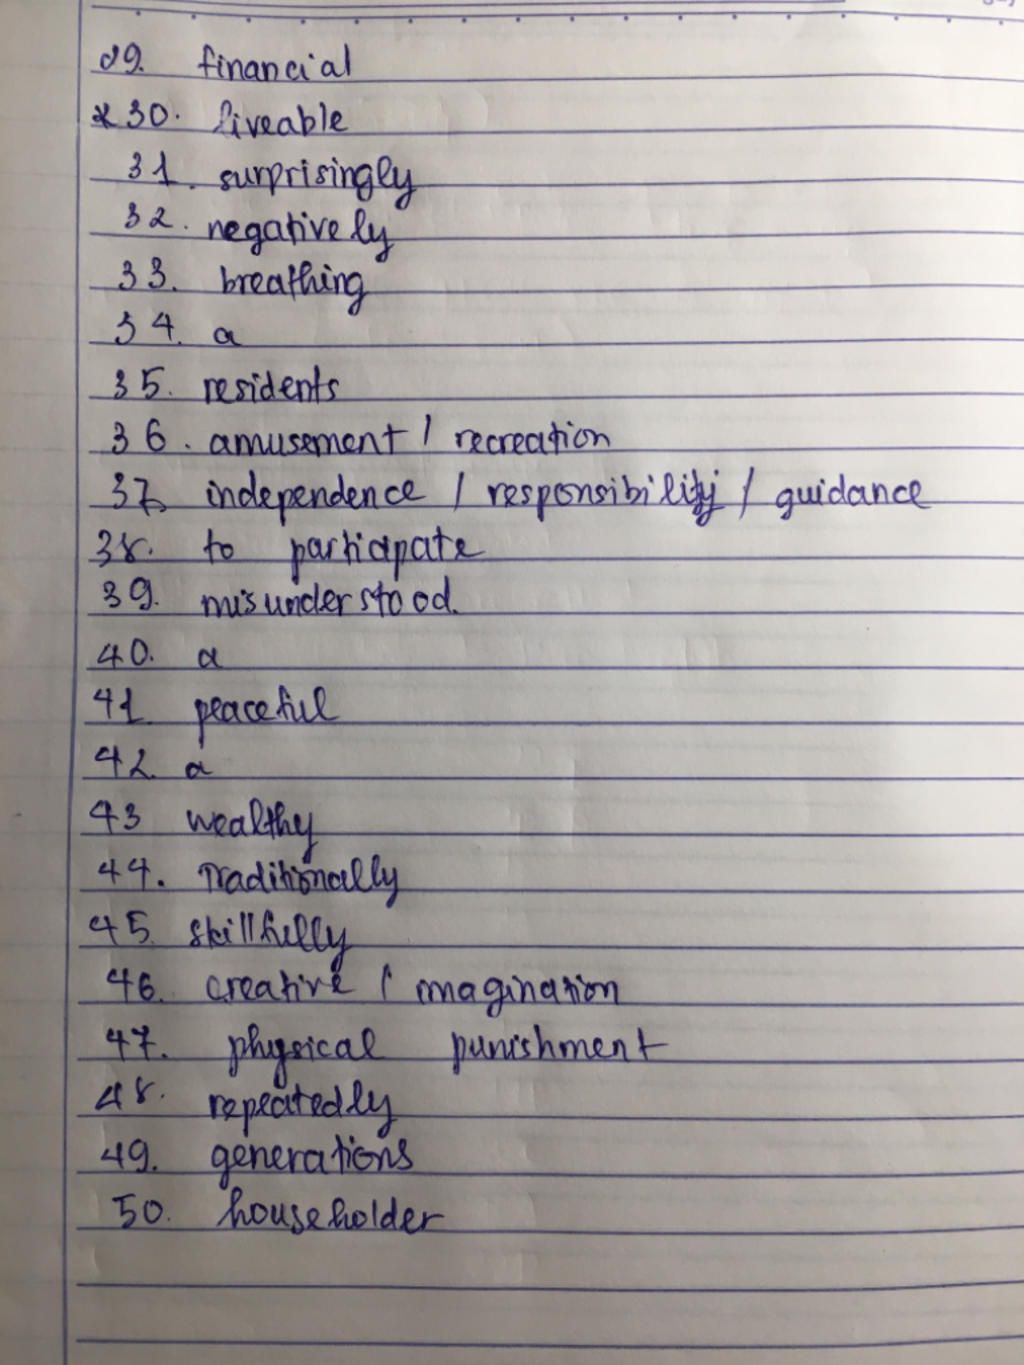 29. financial
*30. liveable
31. surprisingly
32. negatively
33. breathing
34. a
35. residents
36. amusement / recreation
37. independence / responsibility / guidance
38. to participate
39. misunderstood.
40. a
41 peaceful
42. a
43 wealthy
44. Traditionally
45. skillfully
46. creative / imagination
47. physical punishment
48. repeatedly
49. generations
50. householder